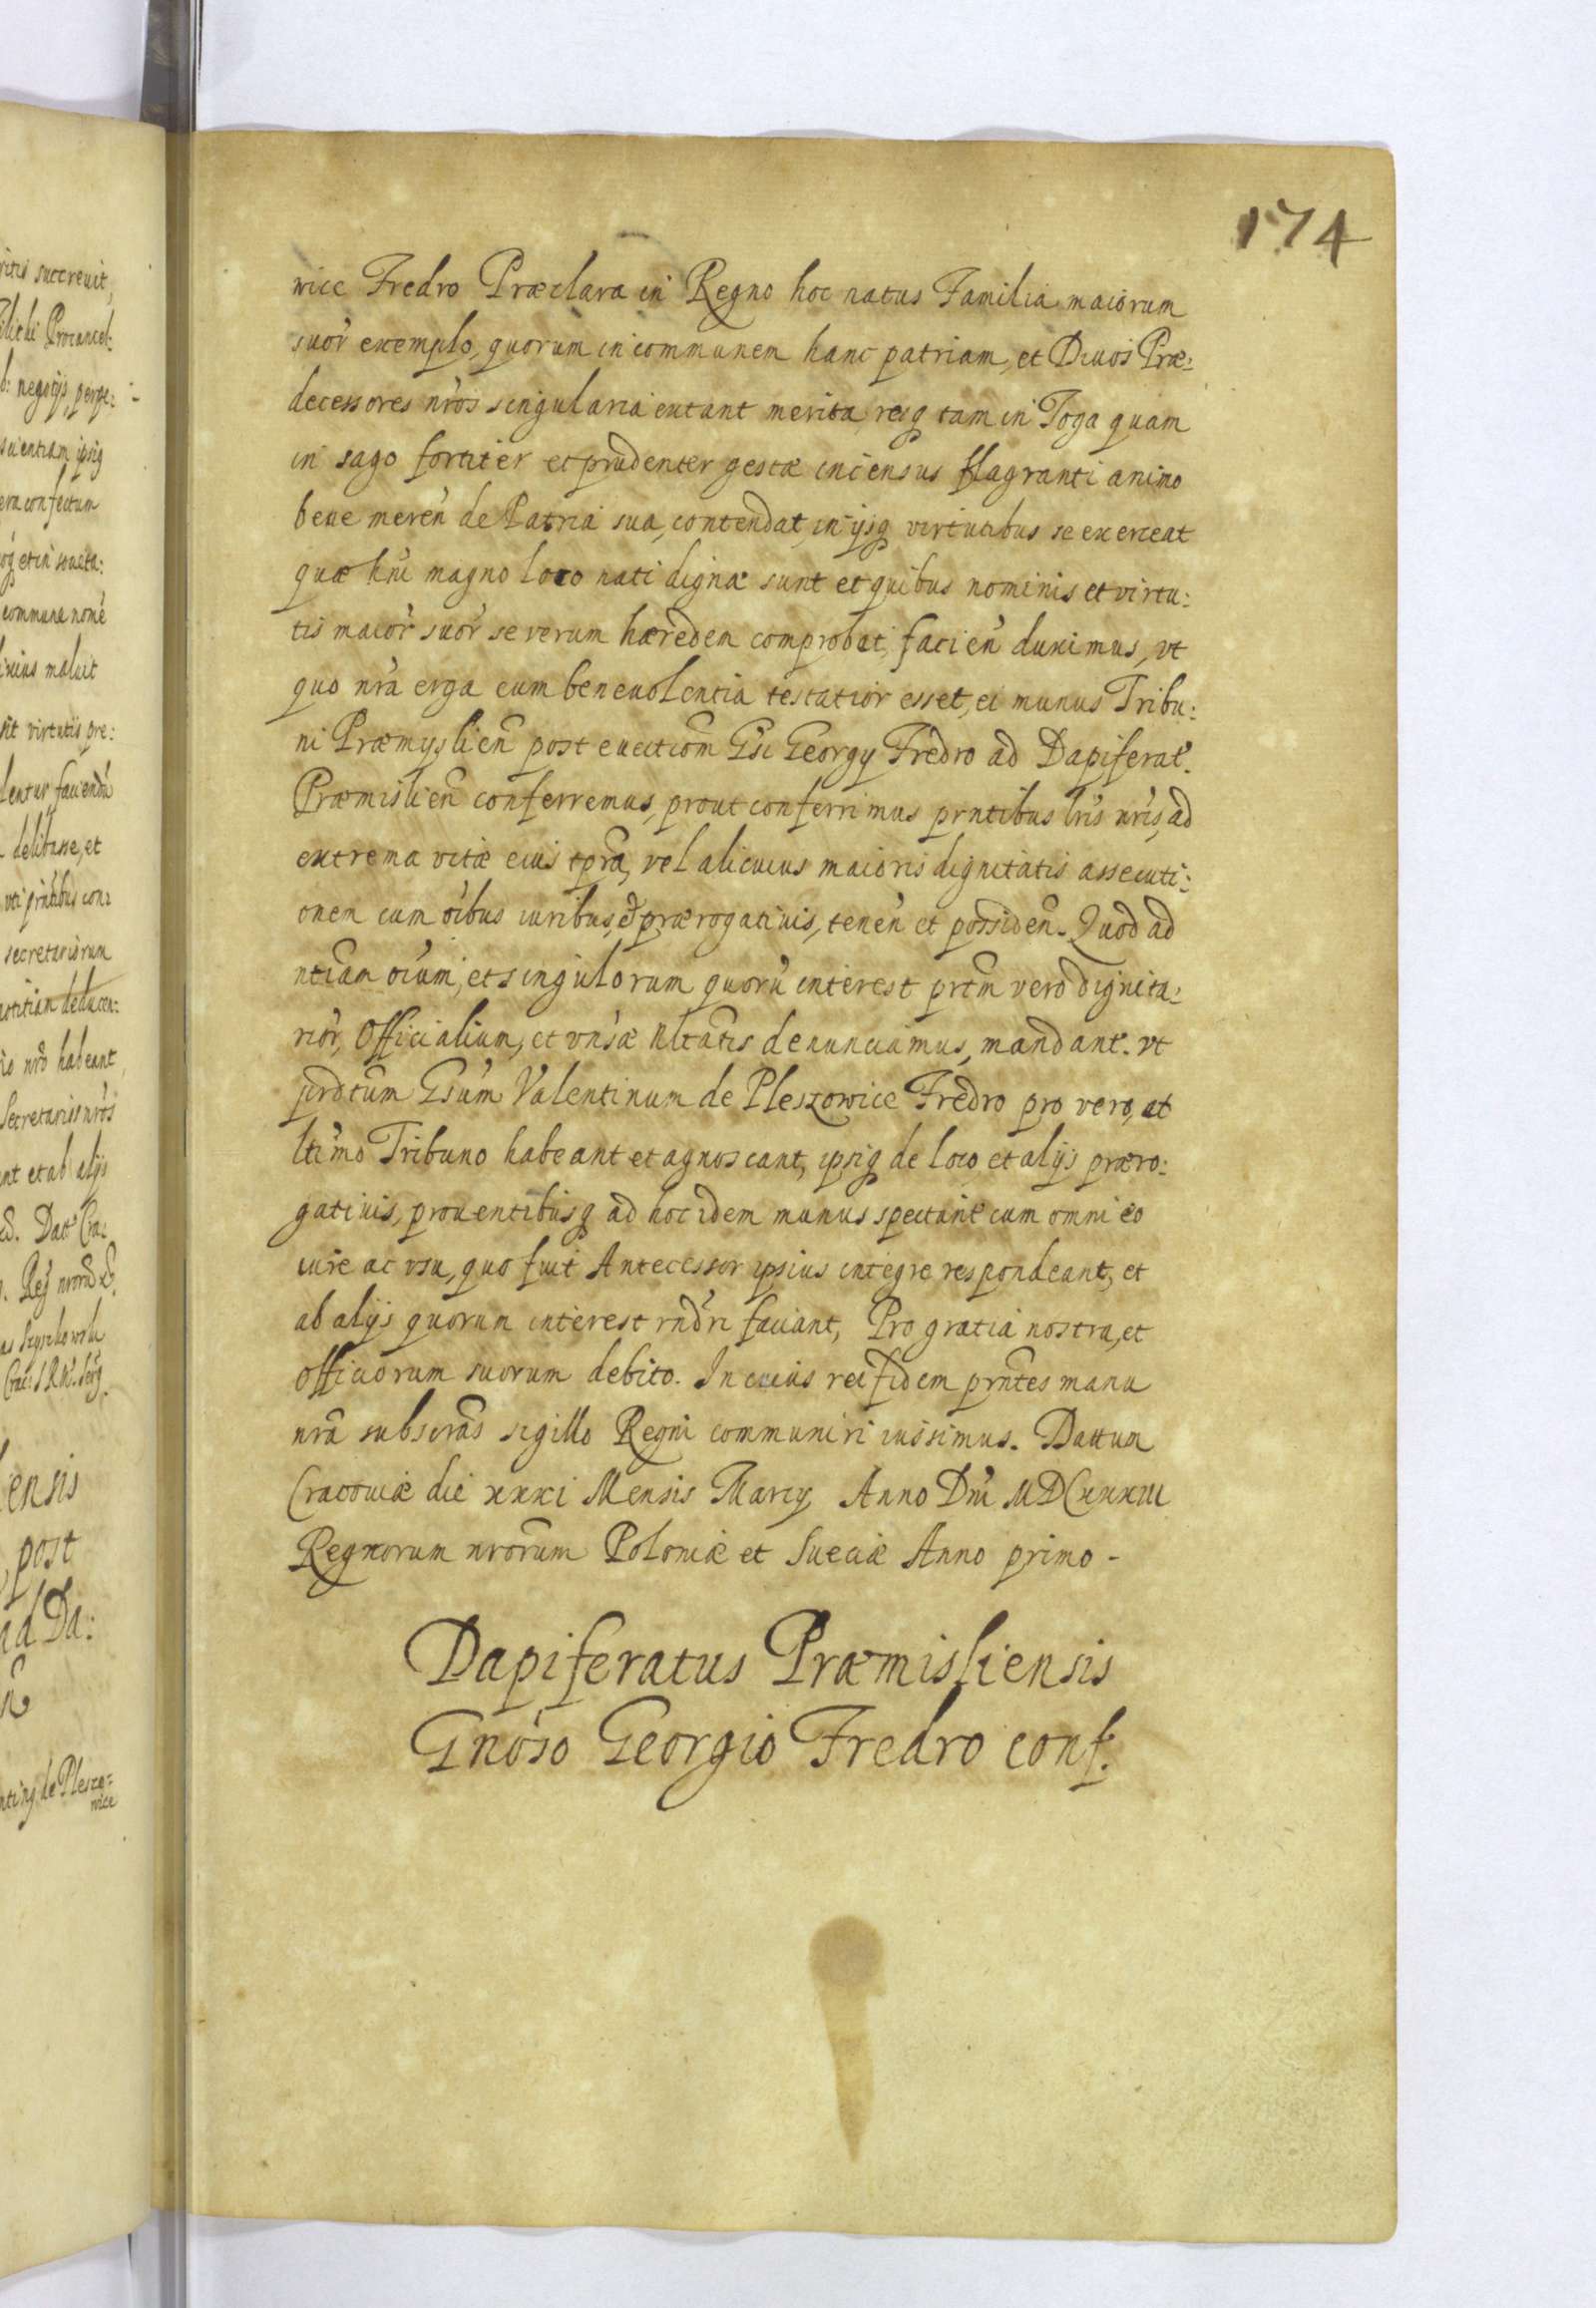 174
wice Fredro Præclara in Regno hoc natus Familia maiorum
suor̃ exemplo, quorum in communem hanc patriam, et Diuos Præ:
decessores nr̃os singularia extant merita, resq tam in Toga quam
in sago fortiter et prudenter gestæ incensus flagranti animo
bene meren̄ de Patria sua, contendat, in ijsq virtutibus se exerceat
quæ hn̄i magno loco nati dignæ sunt et quibus nominis et virtu:
tis maior̃ suor̃ se verum hæredem comprobat, facien̄ duximus, vt
quo nr̃a erga eum beneuolentia testatior esset, ei munus Tribu:
ni Præmyslien̄ post euectiom̃ Gsi Georgy Fredro ad Dapiferat̃.
Præmislien̄ conferremus, prout conferrimus prntibus lr̃is nr̃is, ad
extrema vitæ eius tpr̃a, vel alicuius maioris dignitatis assecuti:
onem cum oĩbus iuribus, et prærogatiuis, tenen̄ et possiden̄. Quod ad
ntĩam oĩum, et singulorum quorũ interest prt̃m vero dignita:
rior̃, Officialium, et vnĩsæ Nltatis denunciamus, mandant̃. vt
prdctum Gsũm Valentinum de Pleszowice Fredro pro vero, et
ltimo Tribuno habeant et agnoscant, ipsiq de loco, et alijs præro:
gatiuis, prouentibusq ad hoc idem munus spectant̃ cum omni eo
iure ac vsu, quo fuit Antecessor ipsius integre respondeant, et
ab alijs quorum interest rndr̃i faciant, Pro gratia nostra, et
officiorum suorum debito. In cuius rei fidem prntes manu
nr̃a subscras̃ sigillo Regni communiri iussimus. Dattum
Cracouiæ die xxxi Mensis Marcy Anno Dn̄i MDCxxxiii
Regnorum nrorum Poloniæ et Sueciæ Anno primo -
Dapiferatus Præmisliensis
Gnoso Georgio Fredro conf.
ritis succreuit,
negotijs, perpe:
scientiam ipsiq
era confectum
commune nomẽ
maluit
virtutis pre:
faciendũ
delibasse, et
secretariorum
nrõ habeant,
Secretariis nrõs
et ab alijs
ensis
post
ad Da:
de Pleszo=
wice